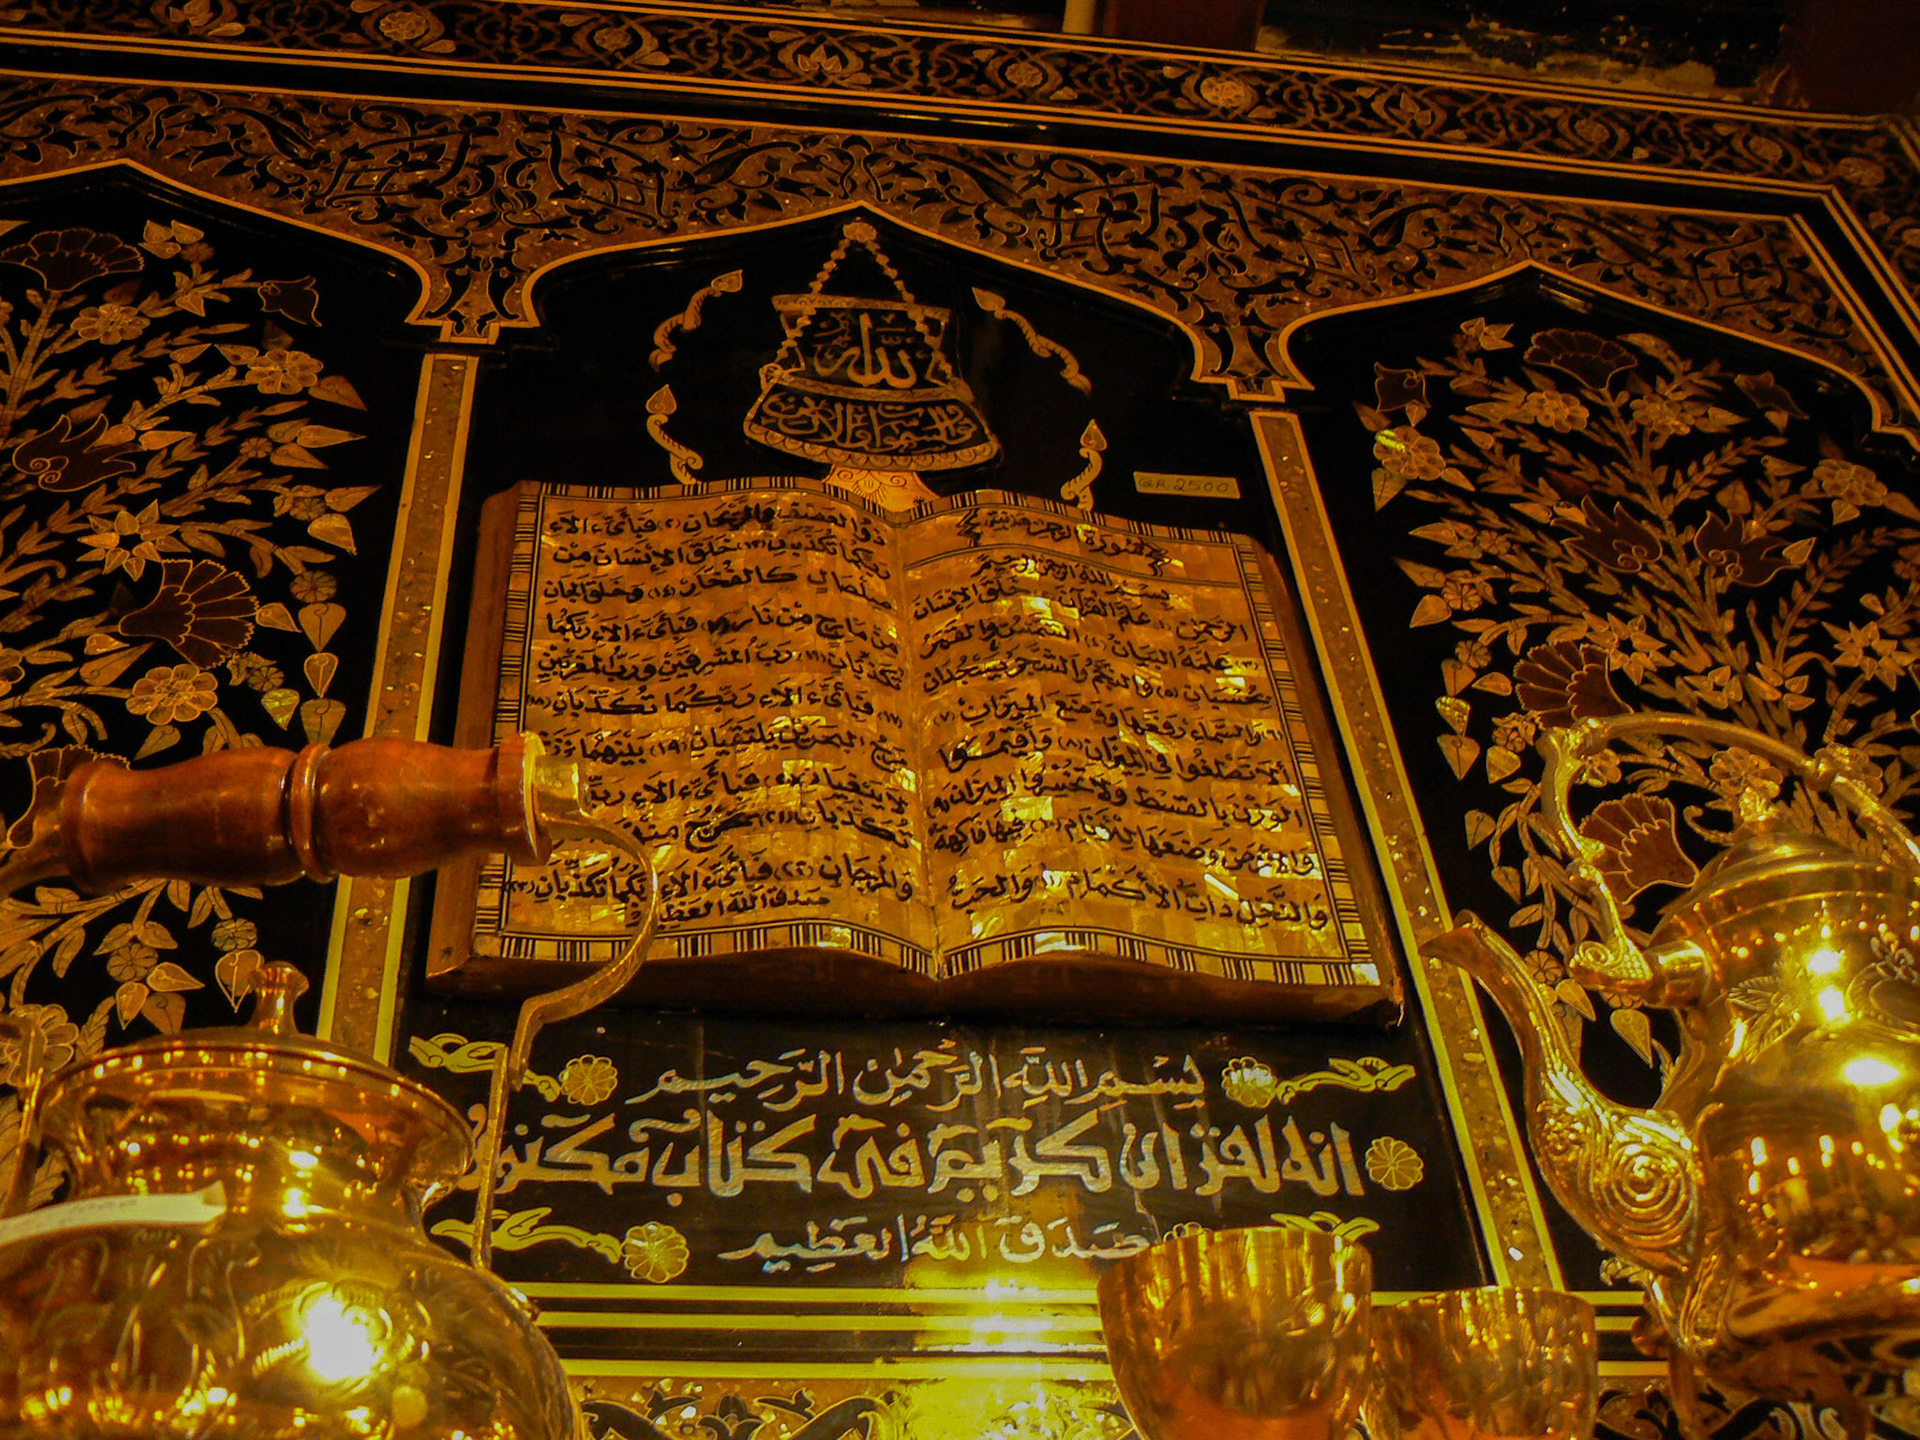 الله
نور السموات والارض
QR 2500
سورة الرحمن مدنية
بسم الله الرحمن الرحيم
الرَّحمٰن (١) علم القرآن (٢) خلق الإنسان
(٣) علمه البيان (٤) الشمس والقمر
بحسبان (٥) والنجم والشجر يسجدان
(٦) والسماء رفعها ووضع الميزان (٧)
ألا تطغوا في الميزان (٨) وأقيموا
الوزن بالقسط ولا تخسروا الميزان (٩)
والأرض وضعها للأنام (١٠) فيها فاكهة
والنخل ذات الأكمام (١١) والحب
ذو العصف والريحان (١٢) فبأيّ ءالاء
ربكما تكذبان (١٣) خلق الإنسان من
صلصال كالفخار (١٤) وخلق الجان
من مارج من نار (١٥) فبأيّ ءالاء ربكما
تكذبان (١٦) رب المشرقين ورب المغربين
(١٧) فبأيّ ءالاء ربكما تكذبان (١٨)
مرج البحرين يلتقيان (١٩) بينهما برزخ
لا يبغيان (٢٠) فبأيّ ءالاء ربّ
تكذبان (٢١) يخرج منه
والمرجان (٢٢) فبأيّ ءالاء ربكما تكذبان (٢٣)
صدق الله العظيم
بِسْمِ اللَّهِ الرَّحْمٰنِ الرَّحِيمِ
انه لقران كريم في كتاب مكنون
صَدَقَ اللَّهُ العَظِيم